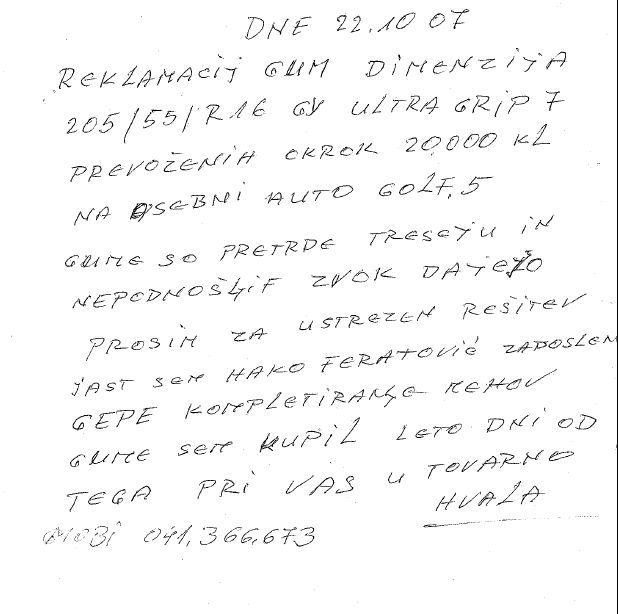 DNE 22.10 07
REKLAMACIJ GUM DIMENZIJA
205/55/R16 GY ULTRA GRIP 7
PREVOŽENIH OKROK 20.000 KL
NA OSEBNI AUTO GOLF,5
GUME SO PRETRDE TRESEJU IN
NEPODNOŠLJIF ZVOK DAJEJO
PROSIM ZA USTREZEN REŠITEV
JAST SEM HAKO FERATOVIĆ ZAPOSLEN
GEPE KOMPLETIRANJE MEHOV
GUME SEM KUPIL LETO DNI OD
TEGA PRI VAS U TOVARNO
HVALA
MOBI 041,366,673